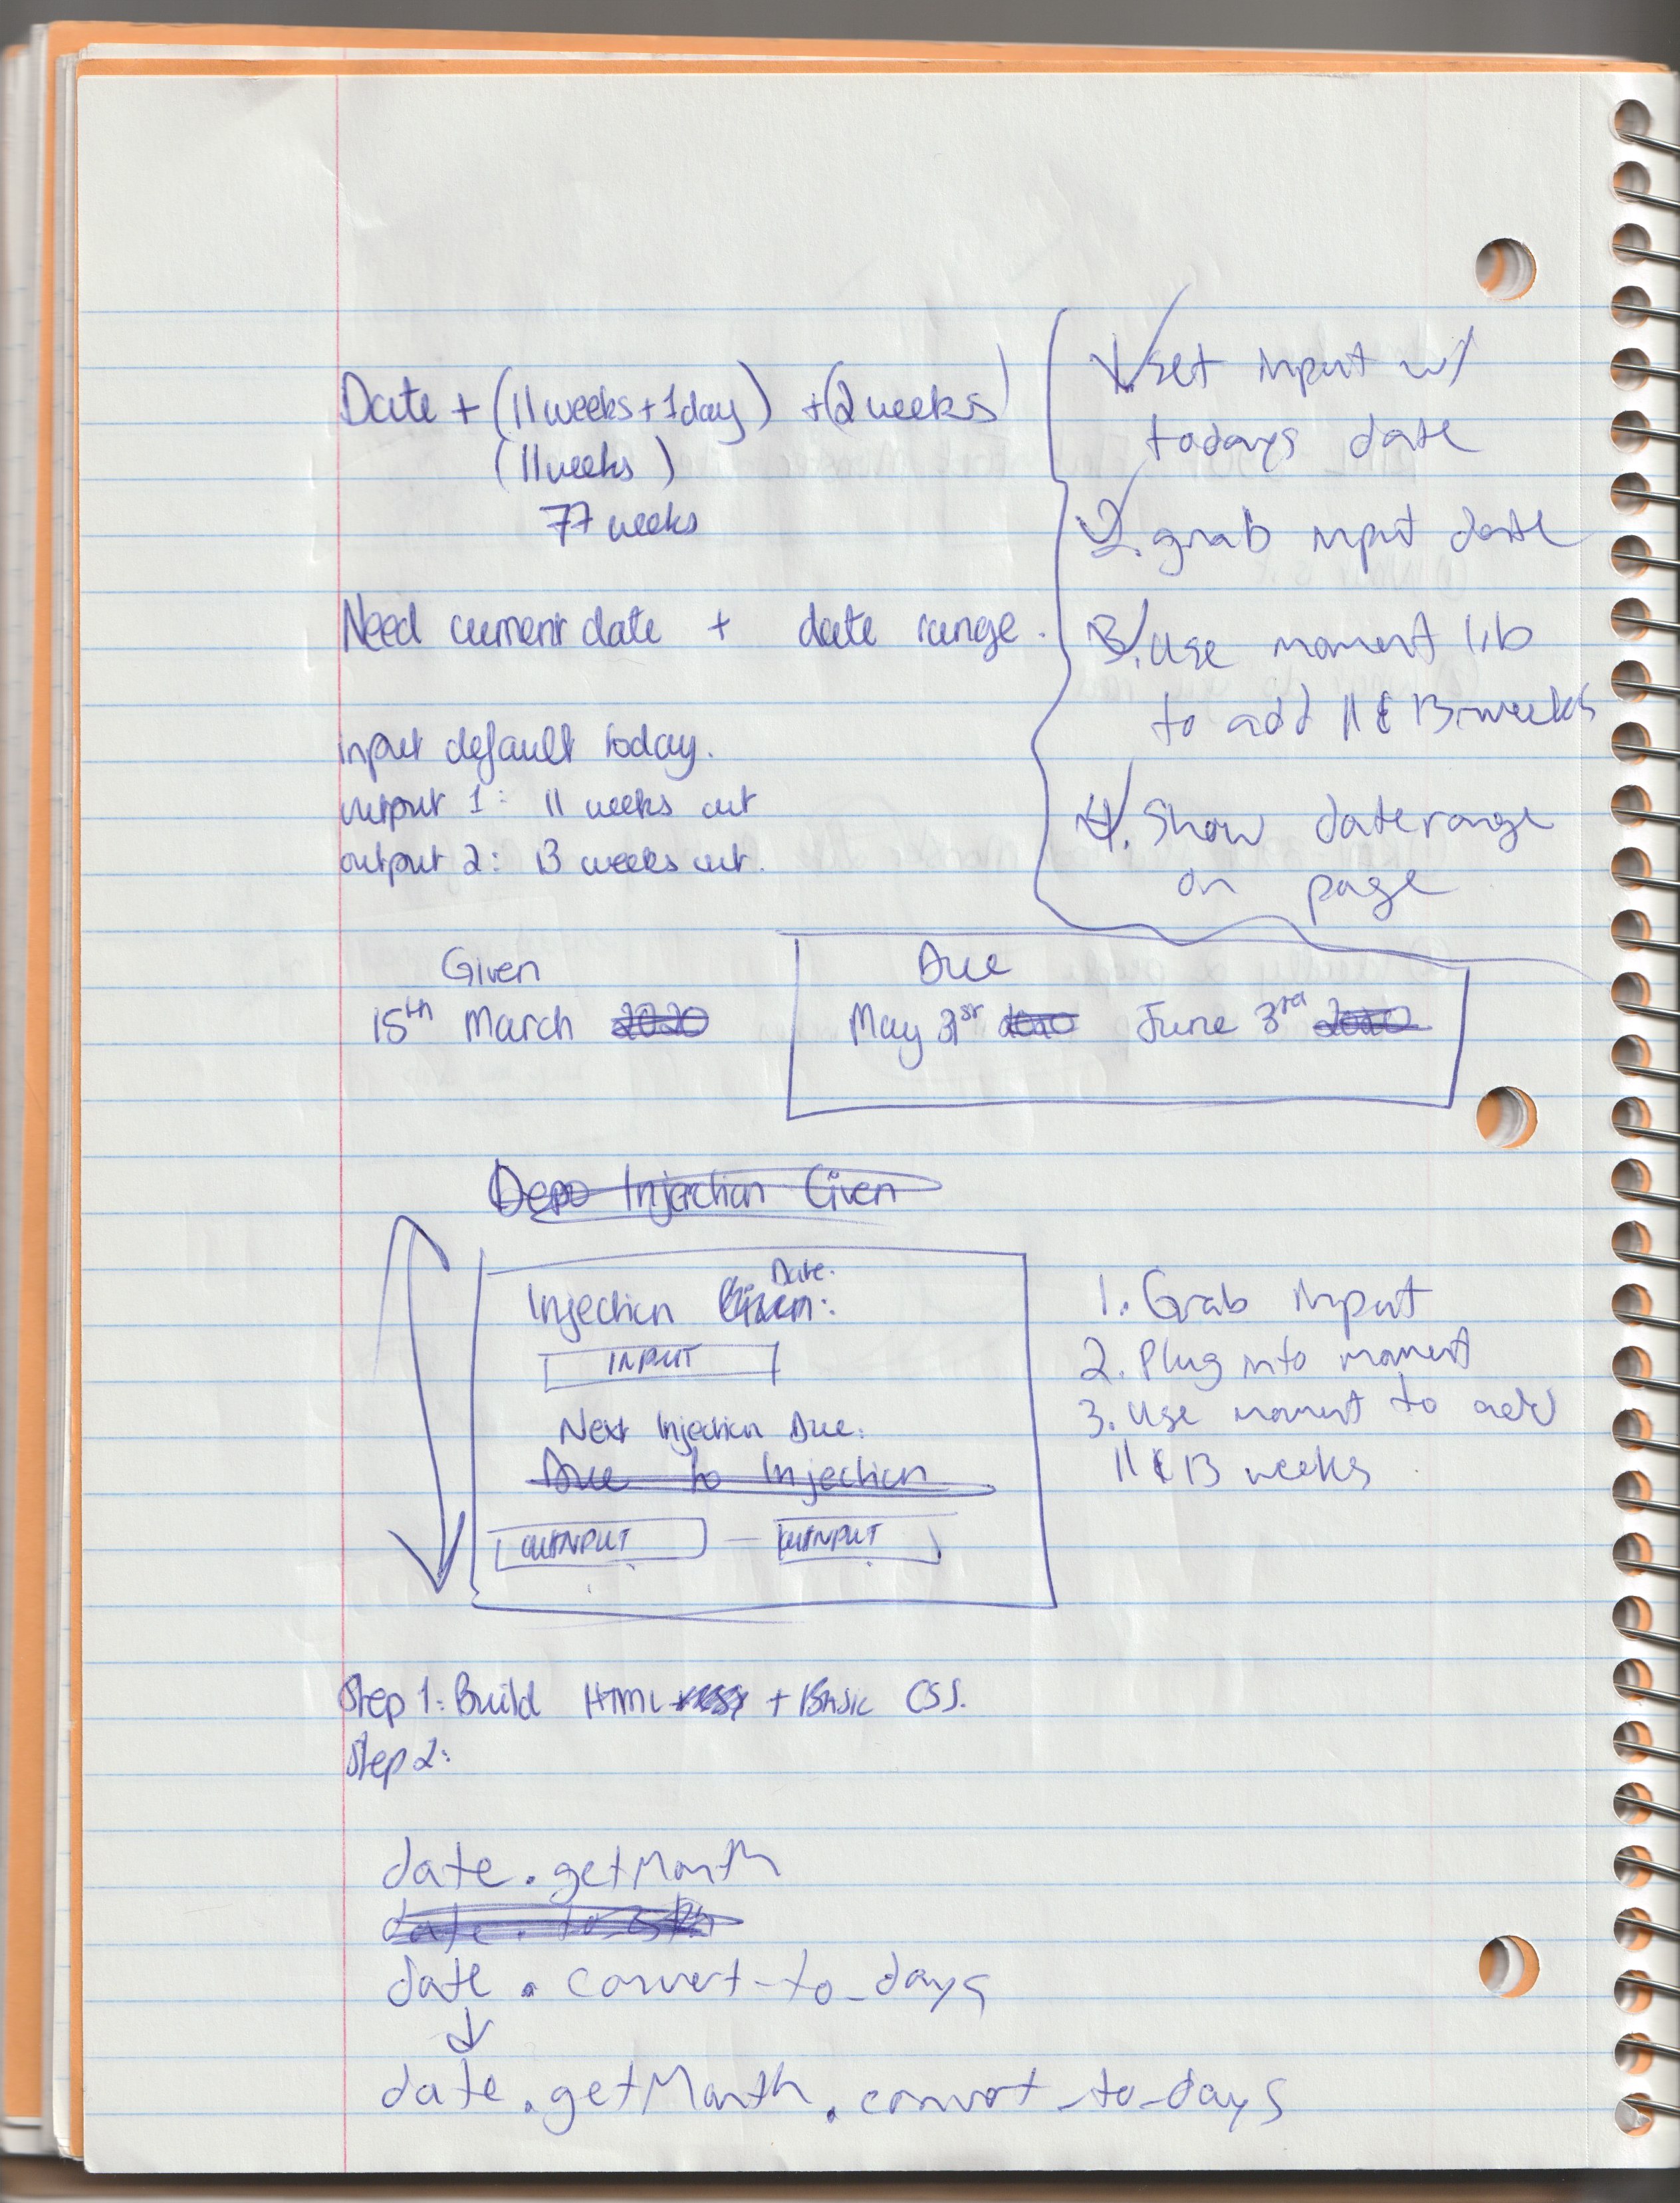 Date + (11 weeks + 1 day) + (2 weeks)
(11 weeks)
77 weeks
Need current date + date range.
input default today.
output 1: 11 weeks out
output 2: 13 weeks out.
1. set input w/
todays date
2. grab input date
3. use moment lib
to add 11 & 13 weeks
4. Show daterange
on page
Given
15th March 2020
Due
May 31st 2020 June 3rd 2020
Depo Injection Given
Injection Given:
Date.
INPUT
Next Injection Due:
Due to Injection
OUTNPUT — OUTNPUT
1. Grab input
2. Plug into moment
3. Use moment to add
11 & 13 weeks
Step 1: Build HTML + Basic CSS.
Step 2:
date.getMonth
date.
date.convert-to_days
date.getMonth.convert_to_days